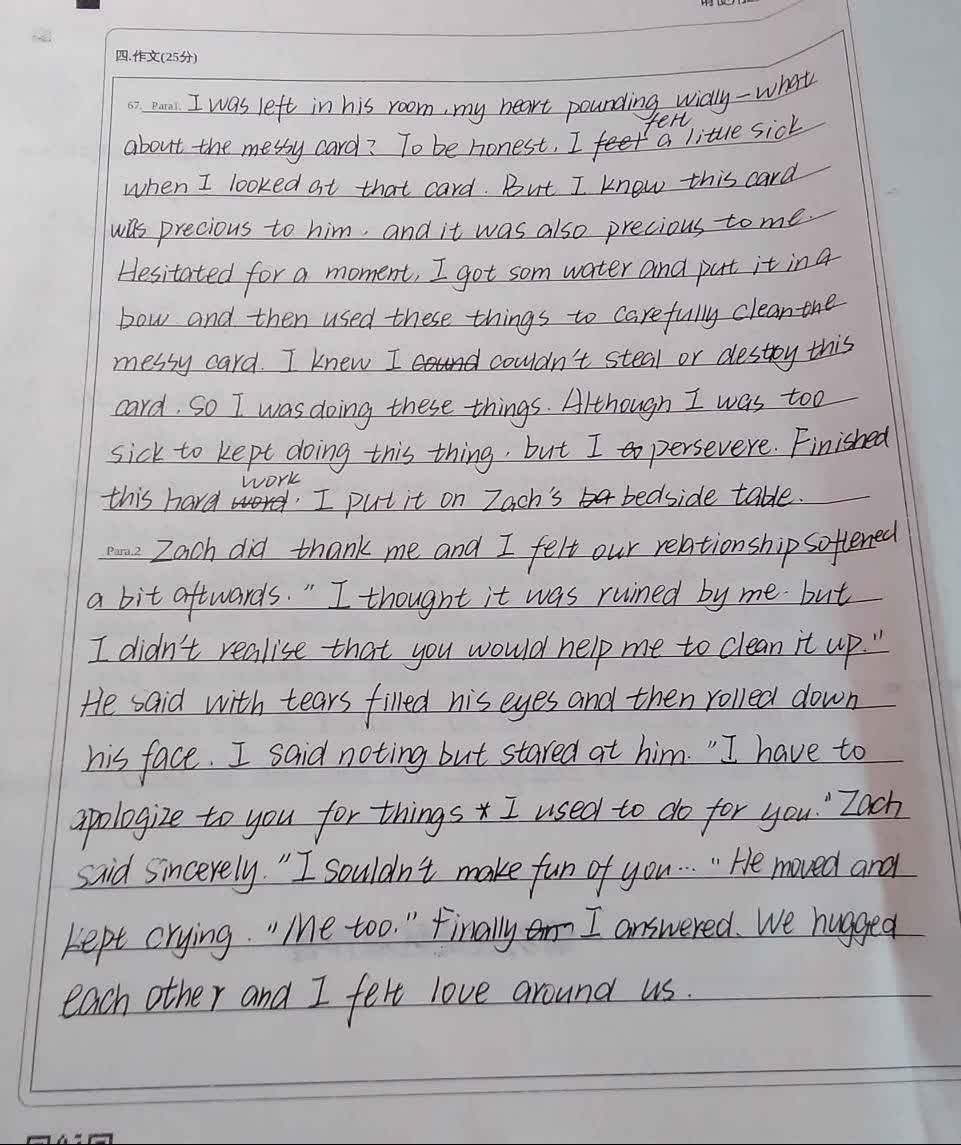 四.作文(25分)
67. Para1. I was left in his room, my heart pounding widly – what
about the messy card? To be honest, I feet felt a little sick
when I looked at that card. But I know this card
was precious to him. and it was also precious to me.
Hesitated for a moment, I got som water and put it in a
bow and then used these things to carefully clean the
messy card. I knew I cound couldn't steal or destroy this
card. So I was doing these things. Although I was too
sick to kept doing this thing, but I to persevere. Finished
this hard word work. I put it on Zach's ba bedside table.
Para.2 Zach did thank me and I felt our relationship softened
a bit aftwards. "I thought it was ruined by me. but
I didn't realise that you would help me to clean it up."
He said with tears filled his eyes and then rolled down
his face. I said noting but stared at him. "I have to
apologize to you for things * I used to do for you." Zach
said sincerely. "I souldn't make fun of you..." He moved and
kept crying. "Me too." Finally I answered. We hugged
each other and I felt love around us.